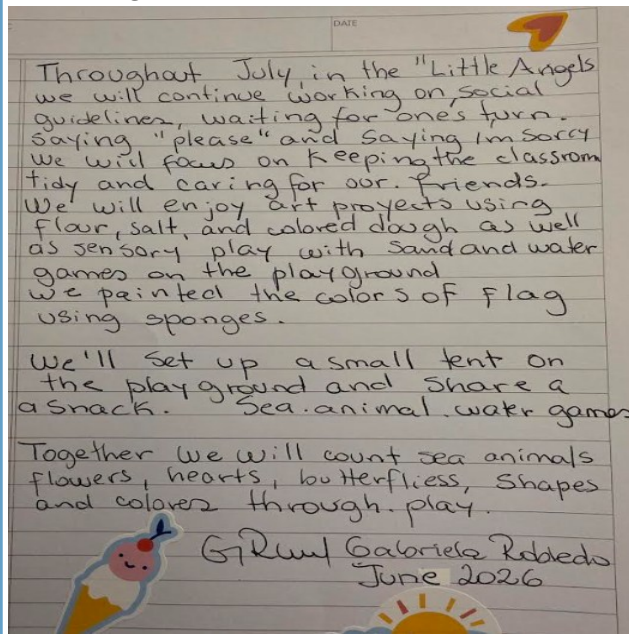 DATE
Throughout July, in the "Little Angels
we will continue working on, social
guidelines, waiting for one's turn.
Saying "please" and saying I'm sorry
we will focus on keeping the classrom
tidy and caring for our. friends.
We will enjoy art proyects using
flour, salt, and colored dough as well
as sensory play with sand and water
games on the playground
we painted the colors of Flag
using sponges.
We'll set up a small tent on
the playground and share a
a snack. Sea.animal.water games
Together we will count sea animals
flowers, hearts, butterfliess, shapes
and colores through.play.
Gabriela Robledo
June 2026